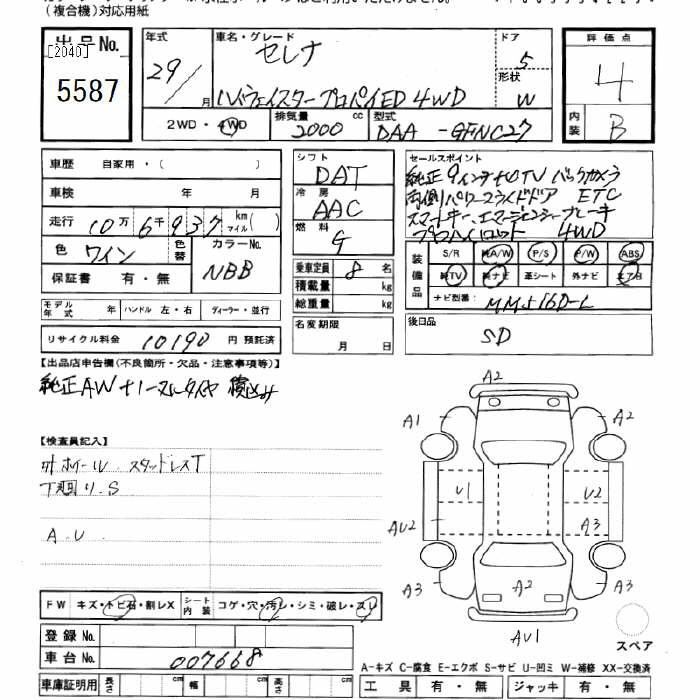 (複合機)対応用紙
出品No.
[2040]
5587
年式
29/
月
車名・グレード
セレナ
ハイウェイスタープロパイED 4WD
ドア
5
形状
W
評価点
4
内装
B
2WD・4WD
排気量
2000 cc
型式
DAA-GFNC27
車歴 自家用・( )
車検 年 月
走行 10万6千937 km マイル( )
色 ワイン
色替
カラーNo.
NBB
保証書 有・無
モデル年式 年 ハンドル 左・右 ディーラー・並行
リサイクル料金 10190 円 預託済
シフト
DAT
冷房
AAC
燃料
G
乗車定員 8 名
積載量 kg
総重量 kg
名変期限
月 日
セールスポイント
純正9インチナビTV バックカメラ
両側パワースライドドア ETC
スマートキー エマージェンシーブレーキ
プロパイロット 4WD
装備品
S/R 純A/W P/S P/W ABS
純TV 純ナビ 革シート 外ナビ エアB
ナビ型番: MM516D-L
後日品
SD
【出品店申告欄(不良箇所・欠品・注意事項等)】
純正AWナノーマルタイヤ 積込み
【検査員記入】
外ホイール スタッドレスT
下廻り.S
A.U
A2
A1
A2
U1
U2
AU2
A3
A3
A2
A3
AU1
スペア
FW キズ・トビ石・割レX
シート内装 コゲ・穴・汚レ・シミ・破レ・スレ
登録No.
車台No. 007668
車庫証明用 長さ cm 幅 cm 高さ cm
A-キズ C-腐食 E-エクボ S-サビ U-凹ミ W-補修 XX-交換済
工具 有・無 ジャッキ 有・無